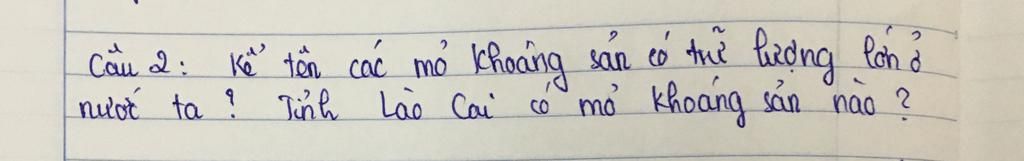 Câu 2: Kể tên các mỏ khoáng sản có trữ lượng lớn ở
nước ta? Tỉnh Lào Cai có mỏ khoáng sản nào?